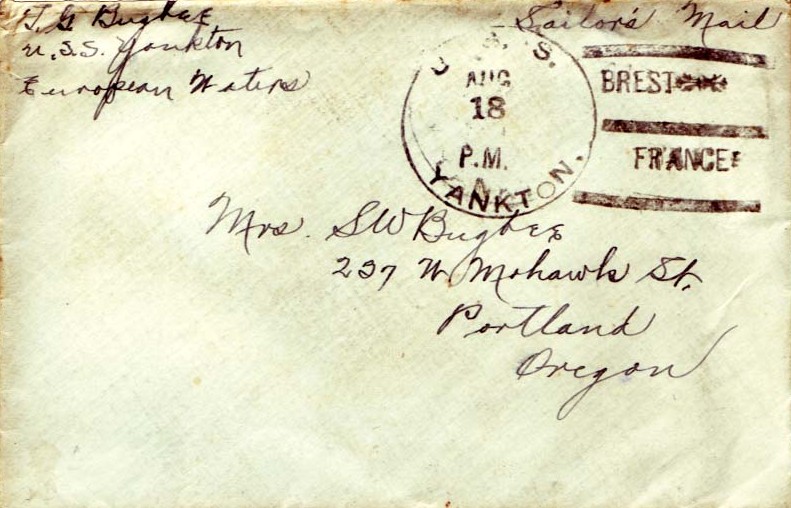 T. G. Bugbee
U.S.S. Yankton
European Waters
Sailor's Mail
U. S. S.
AUG
18
P.M.
YANKTON.
BREST
FRANCE
Mrs. S W Bugbee
237 W Mohawk St.
Portland
Oregon